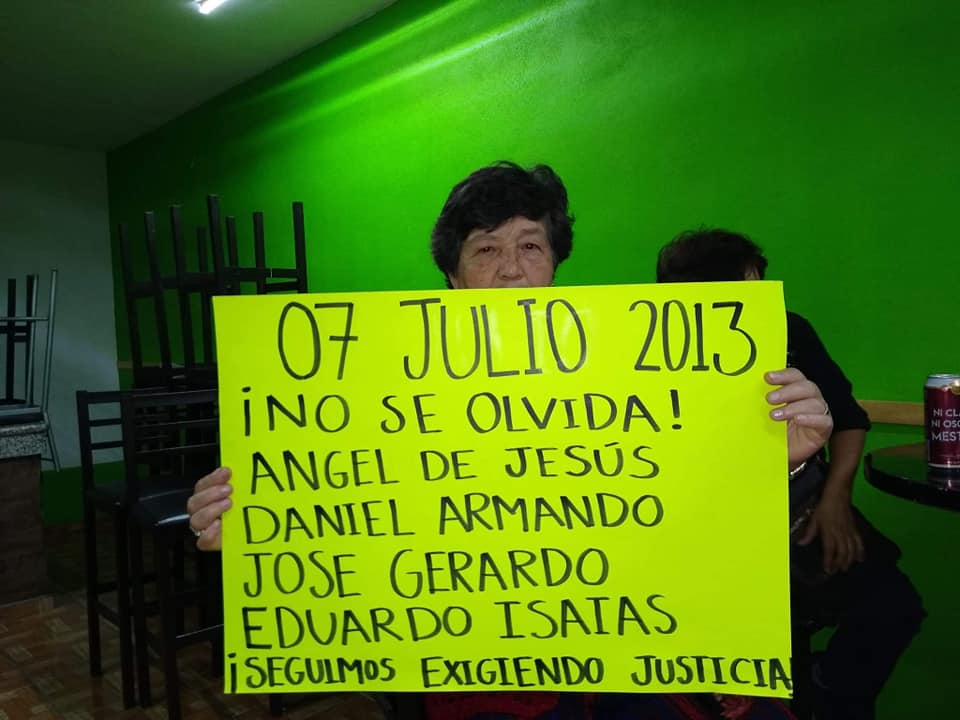 07 JULIO 2013
¡NO SE OLVIDA!
ANGEL DE JESÚS
DANIEL ARMANDO
JOSE GERARDO
EDUARDO ISAIAS
¡SEGUIMOS EXIGIENDO JUSTICIA!
NI
NI